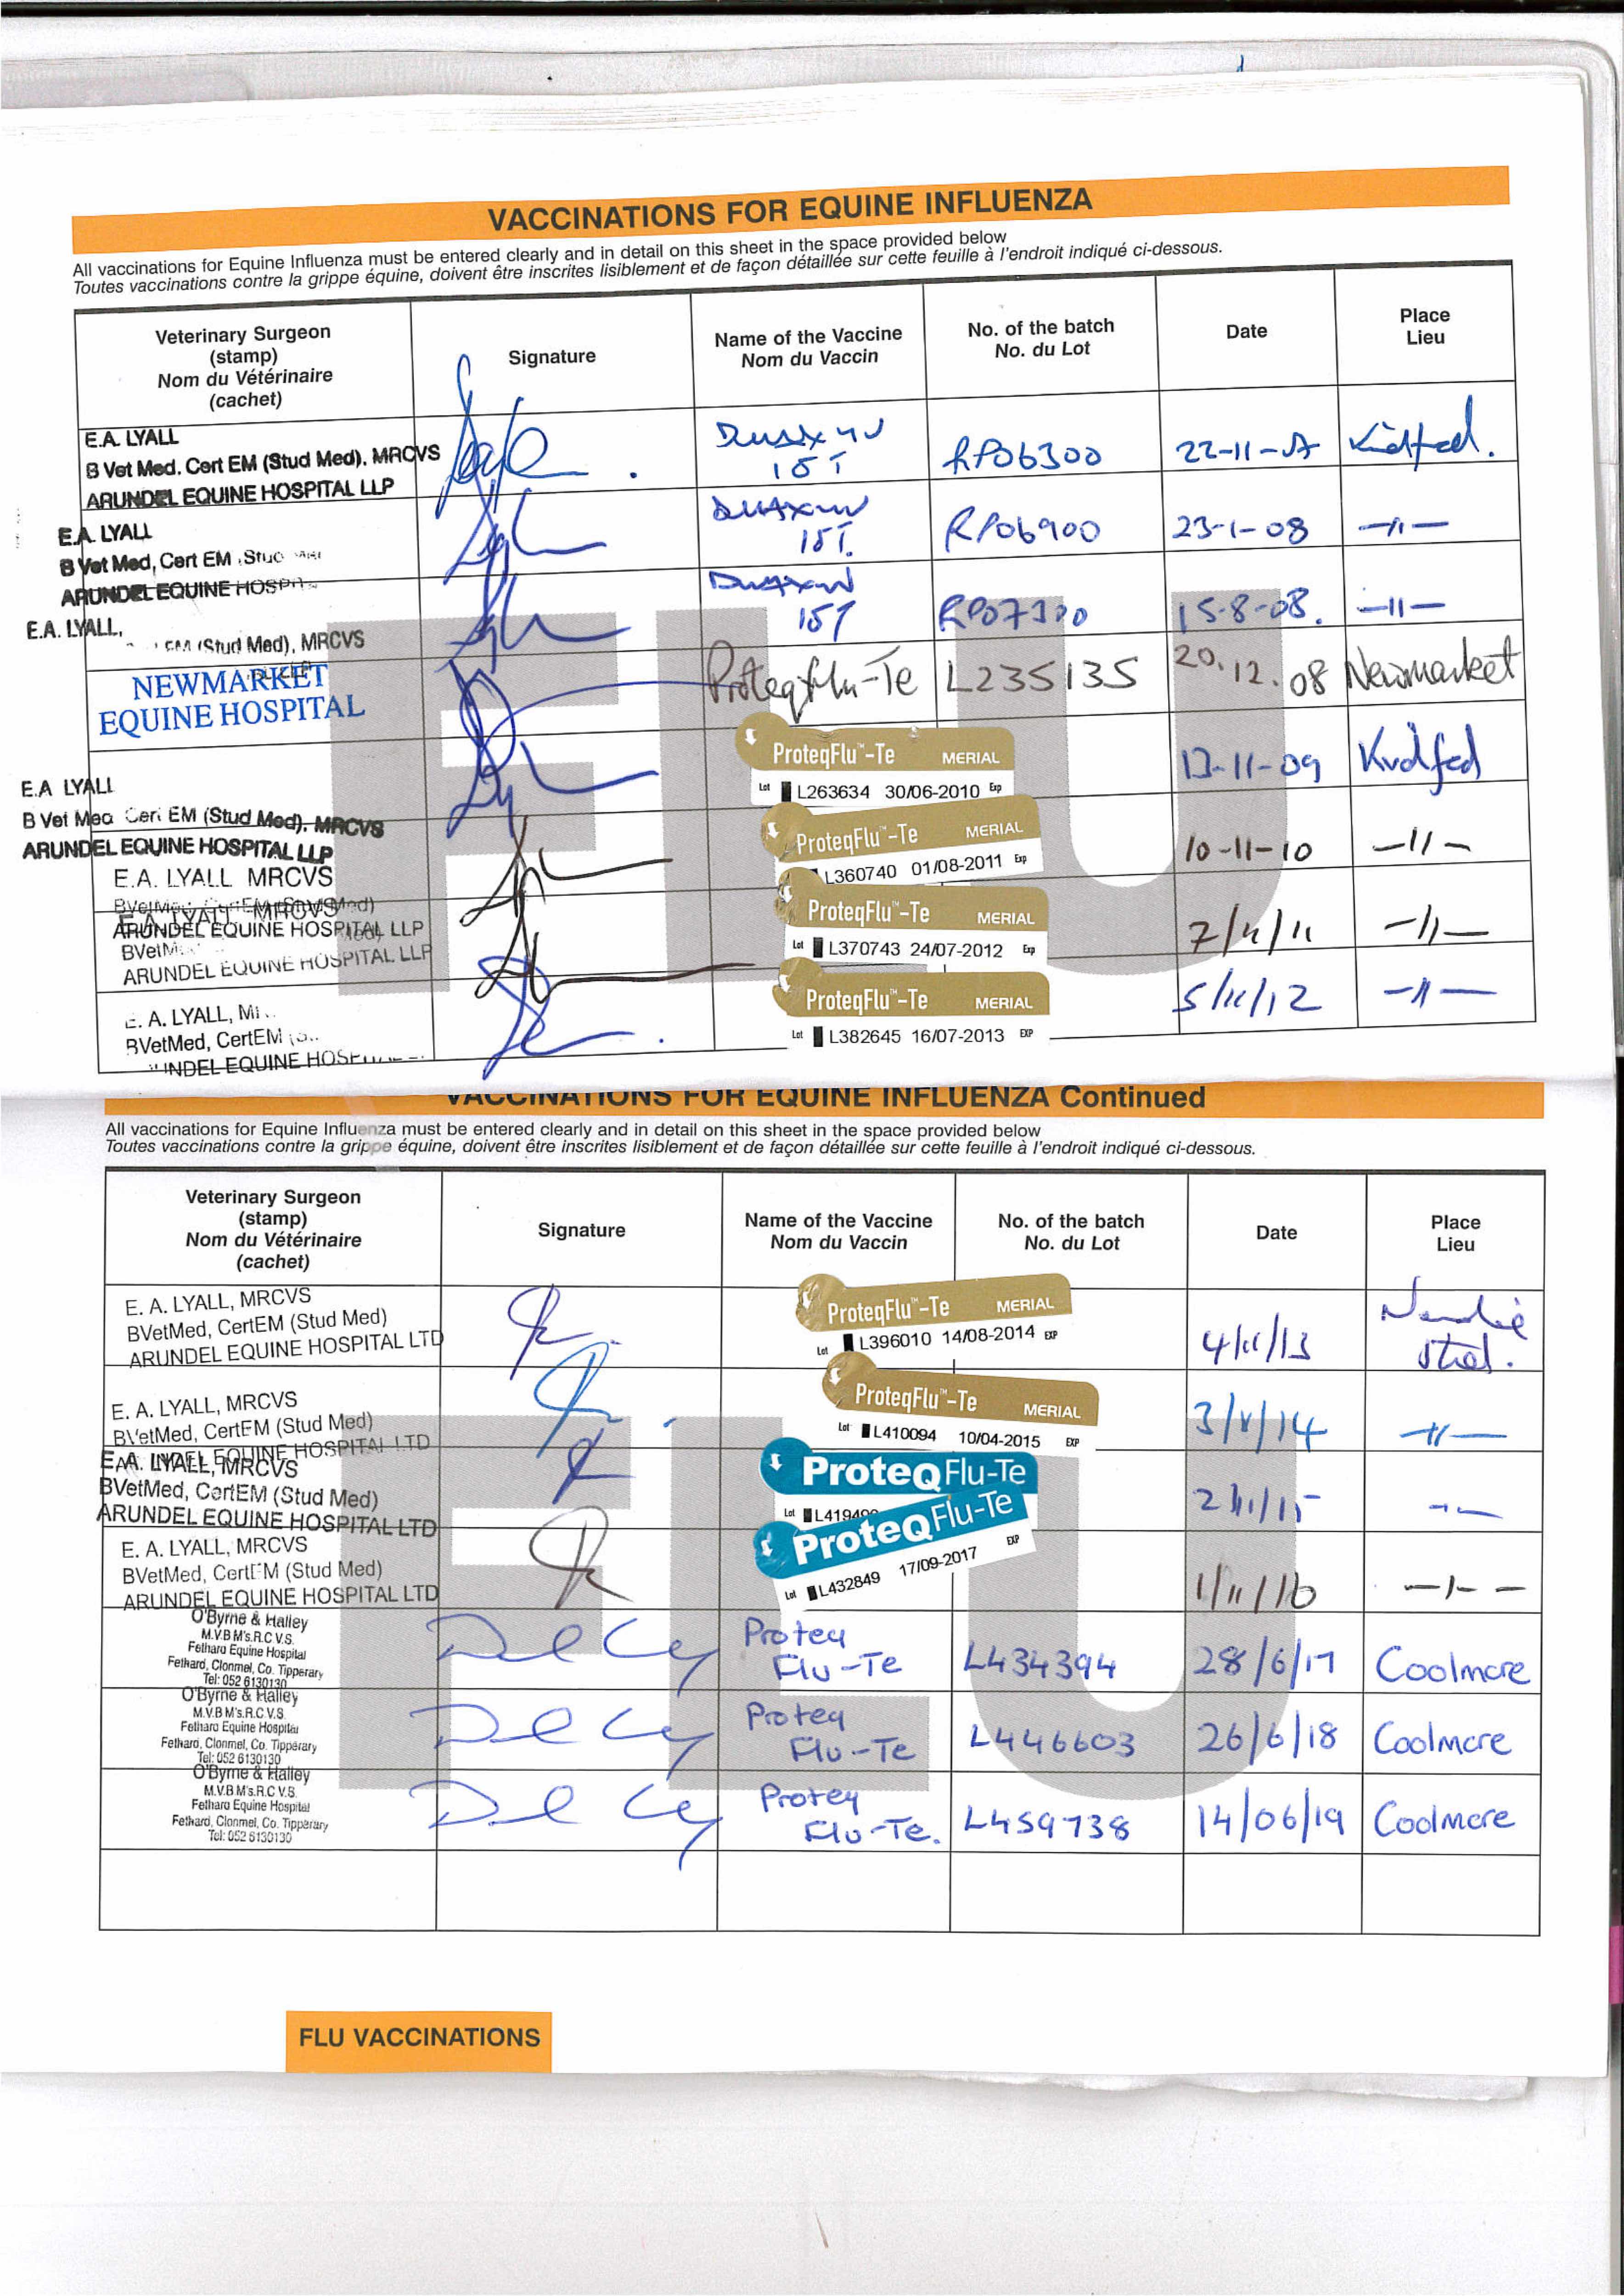 VACCINATIONS FOR EQUINE INFLUENZA
All vaccinations for Equine Influenza must be entered clearly and in detail on this sheet in the space provided below
Toutes vaccinations contre la grippe équine, doivent être inscrites lisiblement et de façon détaillée sur cette feuille à l'endroit indiqué ci-dessous.
Veterinary Surgeon
(stamp)
Nom du Vétérinaire
(cachet)
Signature
Name of the Vaccine
Nom du Vaccin
No. of the batch
No. du Lot
Date
Place
Lieu
E.A. LYALL
B Vet Med. Cert EM (Stud Med), MRCVS
ARUNDEL EQUINE HOSPITAL LLP
RP06300
22-11-
E.A. LYALL
B Vet Med, Cert EM
ARUNDEL EQUINE
RP06900
23-1-08
-11-
E.A. LYALL,
EM (Stud Med), MRCVS
15-8-08.
-11-
NEWMARKET
EQUINE HOSPITAL
ProteqFlu-Te
L235135
20.12.08
Newmarket
E.A LYALL
B Vet Med Cert EM (Stud Med), MRCVS
ARUNDEL EQUINE HOSPITAL LLP
ProteqFlu™-Te MERIAL
Lot L263634 30/06-2010 Exp
-11-09
E.A. LYALL MRCVS
ARUNDEL EQUINE HOSPITAL LLP
ProteqFlu™-Te MERIAL
L360740 01/08-2011 Exp
10-11-10
-11-
E.A. LYALL MRCVS
BVetM
ARUNDEL EQUINE HOSPITAL LLP
ProteqFlu™-Te MERIAL
Lot L370743 24/07-2012 Exp
7/11/11
-11-
E. A. LYALL,
BVetMed, CertEM
EQUINE
ProteqFlu™-Te MERIAL
Lot L382645 16/07-2013 EXP
5/11/12
-11-
FLU
VACCINATIONS FOR EQUINE INFLUENZA Continued
All vaccinations for Equine Influenza must be entered clearly and in detail on this sheet in the space provided below
Toutes vaccinations contre la grippe équine, doivent être inscrites lisiblement et de façon détaillée sur cette feuille à l'endroit indiqué ci-dessous.
Veterinary Surgeon
(stamp)
Nom du Vétérinaire
(cachet)
Signature
Name of the Vaccine
Nom du Vaccin
No. of the batch
No. du Lot
Date
Place
Lieu
E. A. LYALL, MRCVS
BVetMed, CertEM (Stud Med)
ARUNDEL EQUINE HOSPITAL LTD
ProteqFlu™-Te MERIAL
Lot L396010 14/08-2014 EXP
4/11/13
E. A. LYALL, MRCVS
BVetMed, CertEM (Stud Med)
EQUINE HOSPITAL LTD
ProteqFlu™-Te MERIAL
Lot L410094 10/04-2015 EXP
-11-
E.A. LYALL, MRCVS
BVetMed, CertEM (Stud Med)
ARUNDEL EQUINE HOSPITAL LTD
ProteqFlu-Te
Lot
E. A. LYALL, MRCVS
BVetMed, CertEM (Stud Med)
ARUNDEL EQUINE HOSPITAL LTD
ProteqFlu-Te
Lot L432849 17/09-2017 EXP
1/11/16
O'Byrne & Halley
M.V.B M's.R.C.V.S.
Fethard Equine Hospital
Fethard, Clonmel, Co. Tipperary
Tel: 052 6130130
Proteq
Flu-Te
L434394
28/6/17
Coolmore
O'Byrne & Halley
M.V.B M's.R.C.V.S.
Fethard Equine Hospital
Fethard, Clonmel, Co. Tipperary
Tel: 052 6130130
Proteq
Flu-Te
L446603
26/6/18
Coolmore
O'Byrne & Halley
M.V.B M's.R.C.V.S.
Fethard Equine Hospital
Fethard, Clonmel, Co. Tipperary
Tel: 052 6130130
Proteq
Flu-Te.
L459738
14/06/19
Coolmore
FLU
FLU VACCINATIONS